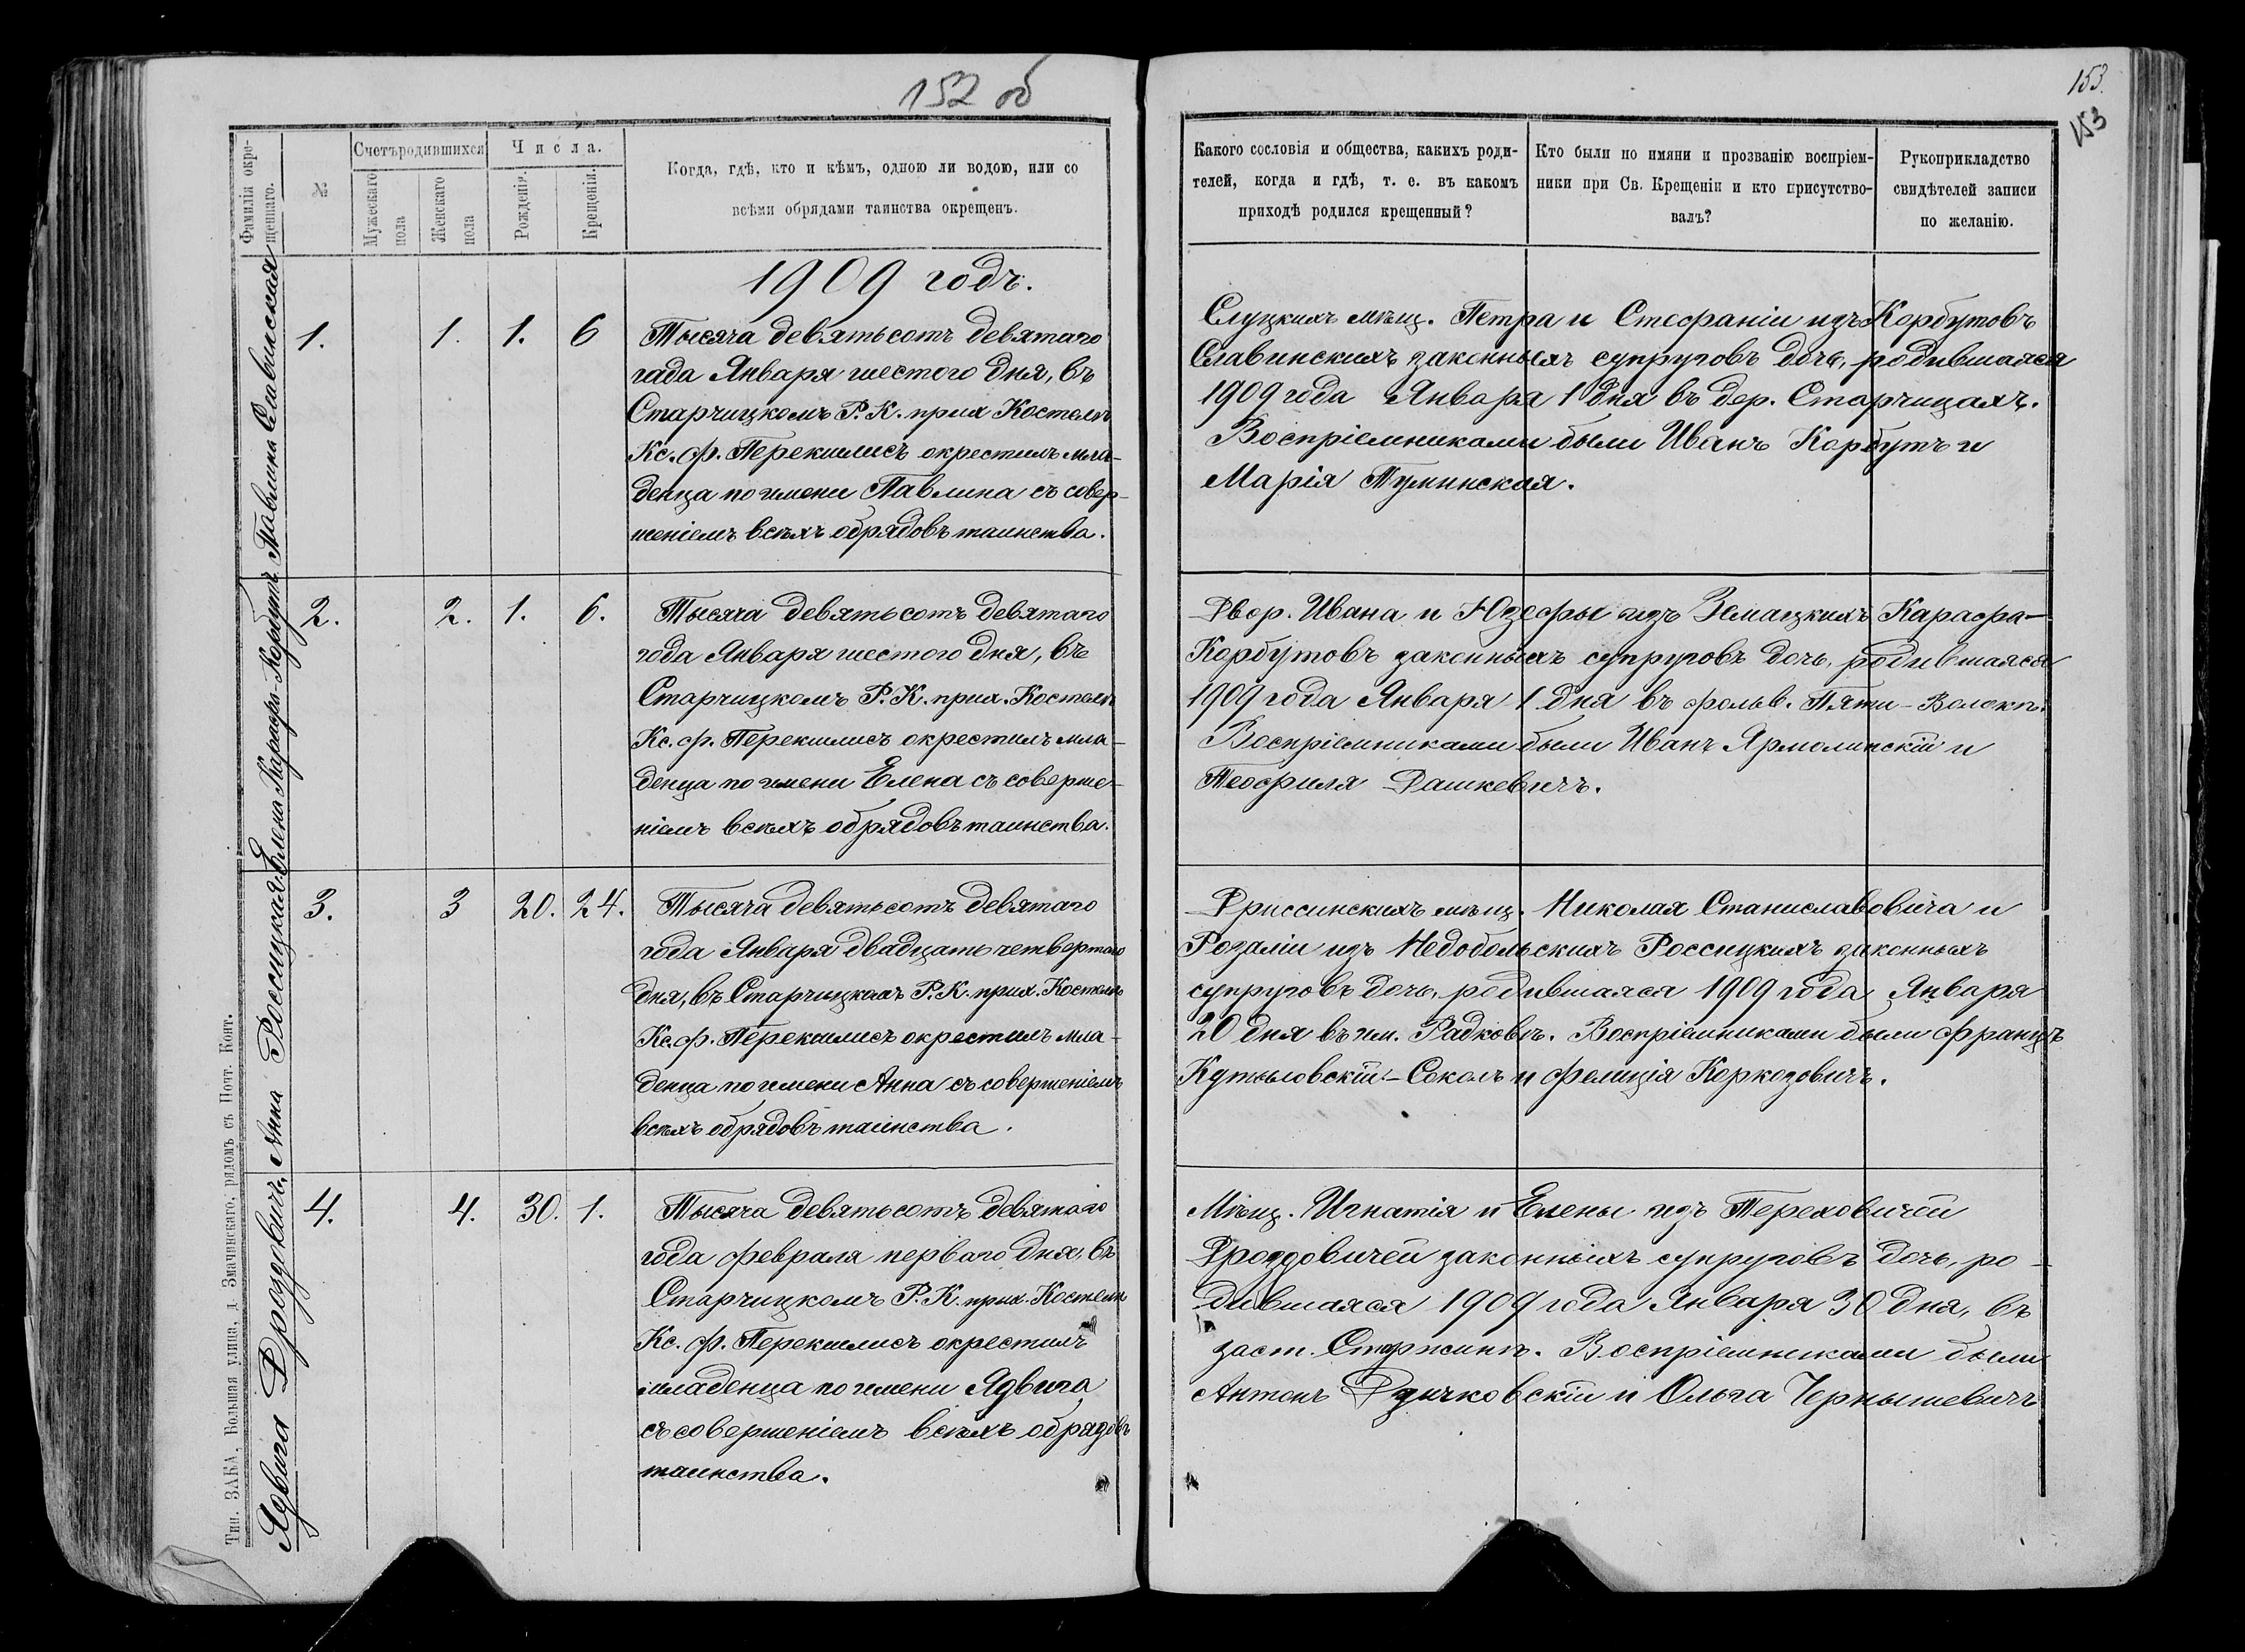 152 об
Фамилія окре-
щеннаго.
№
Счетъ родившихся
Мужескаго
пола
Женскаго
пола
Числа.
Рожденія.
Крещенія.
Когда, гдѣ, кто и кѣмъ, одною ли водою, или со
всѣми обрядами таинства окрещенъ.
1909 годъ.
Павлина Славинская
1.
1.
1.
6
Тысяча девятьсотъ девятаго
года Января шестого дня, въ
Старчицкомъ Р. К. прих Костелѣ
Кс. Ф. Перекшлисъ окрестилъ мла-
денца по имени Павлина съ совер-
шеніемъ всѣхъ обрядовъ таинства.
Елена Карафа-Корбутъ
2.
2.
1.
6.
Тысяча девятьсотъ девятаго
года Января шестого дня, въ
Старчицкомъ Р. К. прих. Костелѣ
Кс. Ф. Перекшлисъ окрестилъ мла-
денца по имени Елена съ соверше-
ніемъ всѣхъ обрядовъ таинства.
Анна Россицкая
3.
3
20.
24.
Тысяча девятьсотъ девятаго
года Января двадцать четвертого
дня, въ Старчицкомъ Р. К. прих. Костелѣ
Кс. Ф. Перекшлисъ окрестилъ мла-
денца по имени Анна съ совершеніемъ
всѣхъ обрядовъ таинства.
Ядвига Дроздовичъ
4.
4.
30.
1.
Тысяча девятьсотъ девятаго
года февраля перваго дня, въ
Старчицкомъ Р. К. прих. Костелѣ
Кс. Ф. Перекшлисъ окрестилъ
младенца по имени Ядвига
съ совершеніемъ всѣхъ обрядовъ
таинства.
Тип. ЗАКА, Большая улица, д. Змачинскаго, рядомъ съ Почт. Конт.
153.
153
Какого сословія и общества, какихъ роди-
телей, когда и гдѣ, т. е. въ какомъ
приходѣ родился крещенный?
Кто были по имяни и прозванію воспріем-
ники при Св. Крещеніи и кто присутство-
валъ?
Рукоприкладство
свидѣтелей записи
по желанію.
Слуцкихъ мѣщ. Петра и Стефаніи изъ Корбутовъ
Славинскихъ законныхъ супруговъ дочь, родившаяся
1909 года Января 1 дня въ дер. Старчицахъ.
Воспріемниками были Иванъ Корбутъ и
Марія Туминская.
Двор. Ивана и Юзефы изъ Земацкихъ Карафа-
Корбутовъ законныхъ супруговъ дочь, родившаяся
1909 года Января 1 дня въ фольв. Пяти-Волокъ.
Воспріемниками были Иванъ Ярмолинскій и
Теофиля Дашкевичъ.
Дриссинскихъ мѣщ. Николая Станиславовича и
Розаліи изъ Недобольскихъ Россицкихъ законныхъ
супруговъ дочь, родившаяся 1909 года Января
20 дня въ им. Радковѣ. Воспріемниками были Францъ
Кутыловскій-Соколъ и Фелиція Коркозовичъ.
Мѣщ. Игнатія и Елены изъ Тереховичей
Дроздовичей законныхъ супруговъ дочь, ро-
дившаяся 1909 года Января 30 дня, въ
заст. Старжинѣ. Воспріемниками были
Антонъ Дзичковскій и Ольга Чернышевичъ